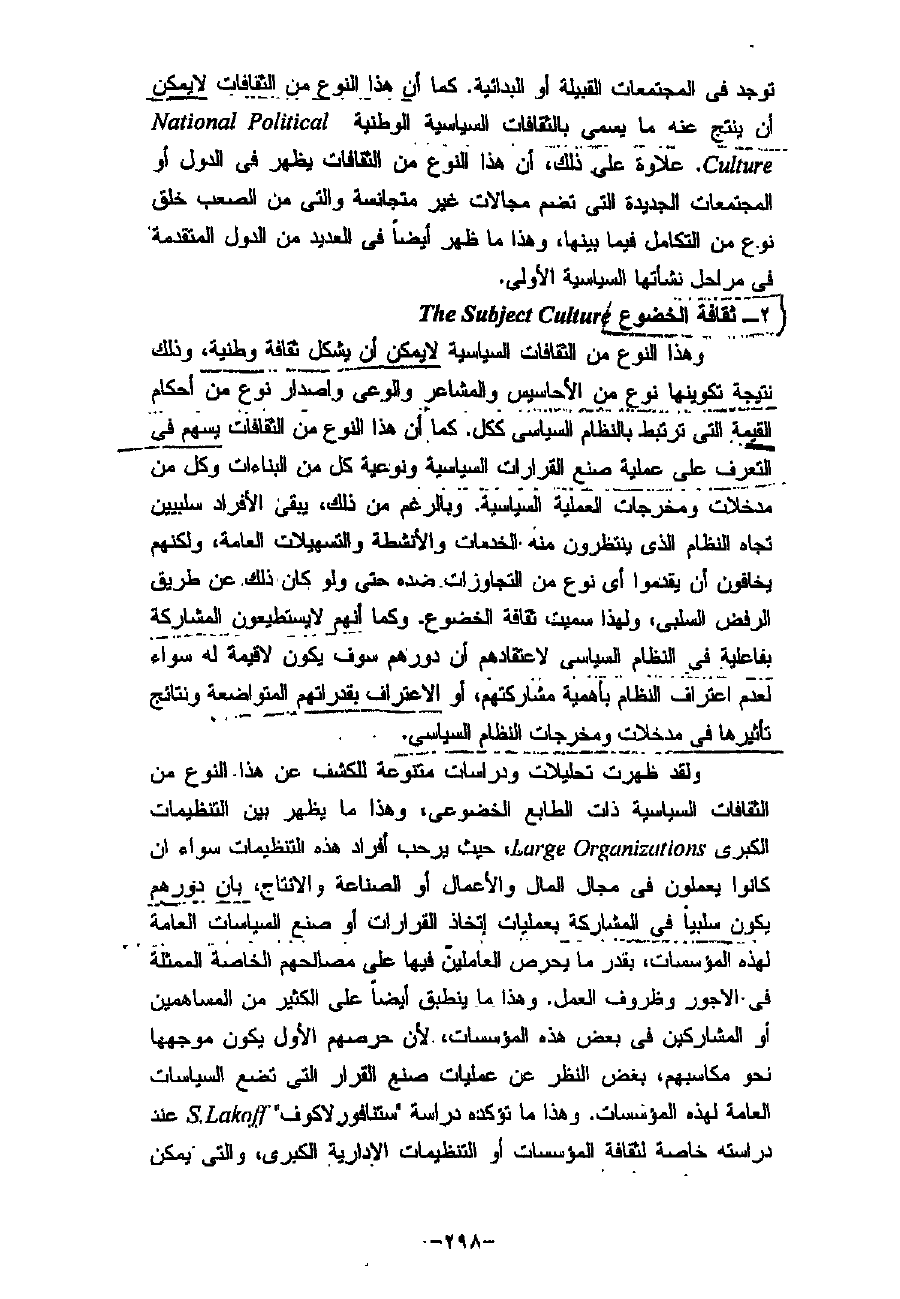 توجد فى المجتمعات القبيلة أو البدائية. كما أن هذا النوع من الثقافات لايمكن
أن ينتج عنه ما يسمى بالثقافات السياسية الوطنية National Political
Culture. علاوة على ذلك، أن هذا النوع من الثقافات يظهر فى الدول أو
المجتمعات الجديدة التى تضم مجالات غير متجانسة والتى من الصعب خلق
نوع من التكامل فيما بينها، وهذا ما ظهر أيضاً فى العديد من الدول المتقدمة
فى مراحل نشأتها السياسية الأولى.
٢ــ ثقافة الخضوع The Subject Culture
وهذا النوع من الثقافات السياسية لايمكن أن يشكل ثقافة وطنية، وذلك
نتيجة تكوينها نوع من الأحاسيس والمشاعر والوعى وإصدار نوع من أحكام
القيمة التى ترتبط بالنظام السياسى ككل. كما أن هذا النوع من الثقافات يسهم فى
التعرف على عملية صنع القرارات السياسية ونوعية كل من البناءات وكل من
مدخلات ومخرجات العملية السياسية. وبالرغم من ذلك، يبقى الأفراد سلبيين
تجاه النظام الذى ينتظرون منه الخدمات والأنشطة والتسهيلات العامة، ولكنهم
يخافون أن يقدموا أى نوع من التجاوزات ضده حتى ولو كان ذلك عن طريق
الرفض السلبى، ولهذا سميت ثقافة الخضوع. وكما أنهم لايستطيعون المشاركة
بفاعلية فى النظام السياسى لاعتقادهم أن دورهم سوف يكون لاقيمة له سواء
لعدم اعتراف النظام بأهمية مشاركتهم، أو الاعتراف بقدراتهم المتواضعة ونتائج
تأثيرها فى مدخلات ومخرجات النظام السياسى.
ولقد ظهرت تحليلات ودراسات متنوعة للكشف عن هذا النوع من
الثقافات السياسية ذات الطابع الخضوعى، وهذا ما يظهر بين التنظيمات
الكبرى Large Organizations، حيث يرحب أفراد هذه التنظيمات سواء ان
كانوا يعملون فى مجال المال والأعمال أو الصناعة والانتاج، بان دورهم
يكون سلبياً فى المشاركة بعمليات إتخاذ القرارات أو صنع السياسات العامة
لهذه المؤسسات، بقدر ما يحرص العاملين فيها على مصالحهم الخاصة الممثلة
فى الاجور وظروف العمل. وهذا ما ينطبق أيضاً على الكثير من المساهمين
أو المشاركين فى بعض هذه المؤسسات، لأن حرصهم الأول يكون موجهها
نحو مكاسبهم، بغض النظر عن عمليات صنع القرار التى تضع السياسات
العامة لهذه المؤسسات. وهذا ما تؤكده دراسة "ستنافورلاكوف" S.Lakoff عند
دراسته خاصة لثقافة المؤسسات أو التنظيمات الإدارية الكبرى، والتى يمكن
-٢٩٨-